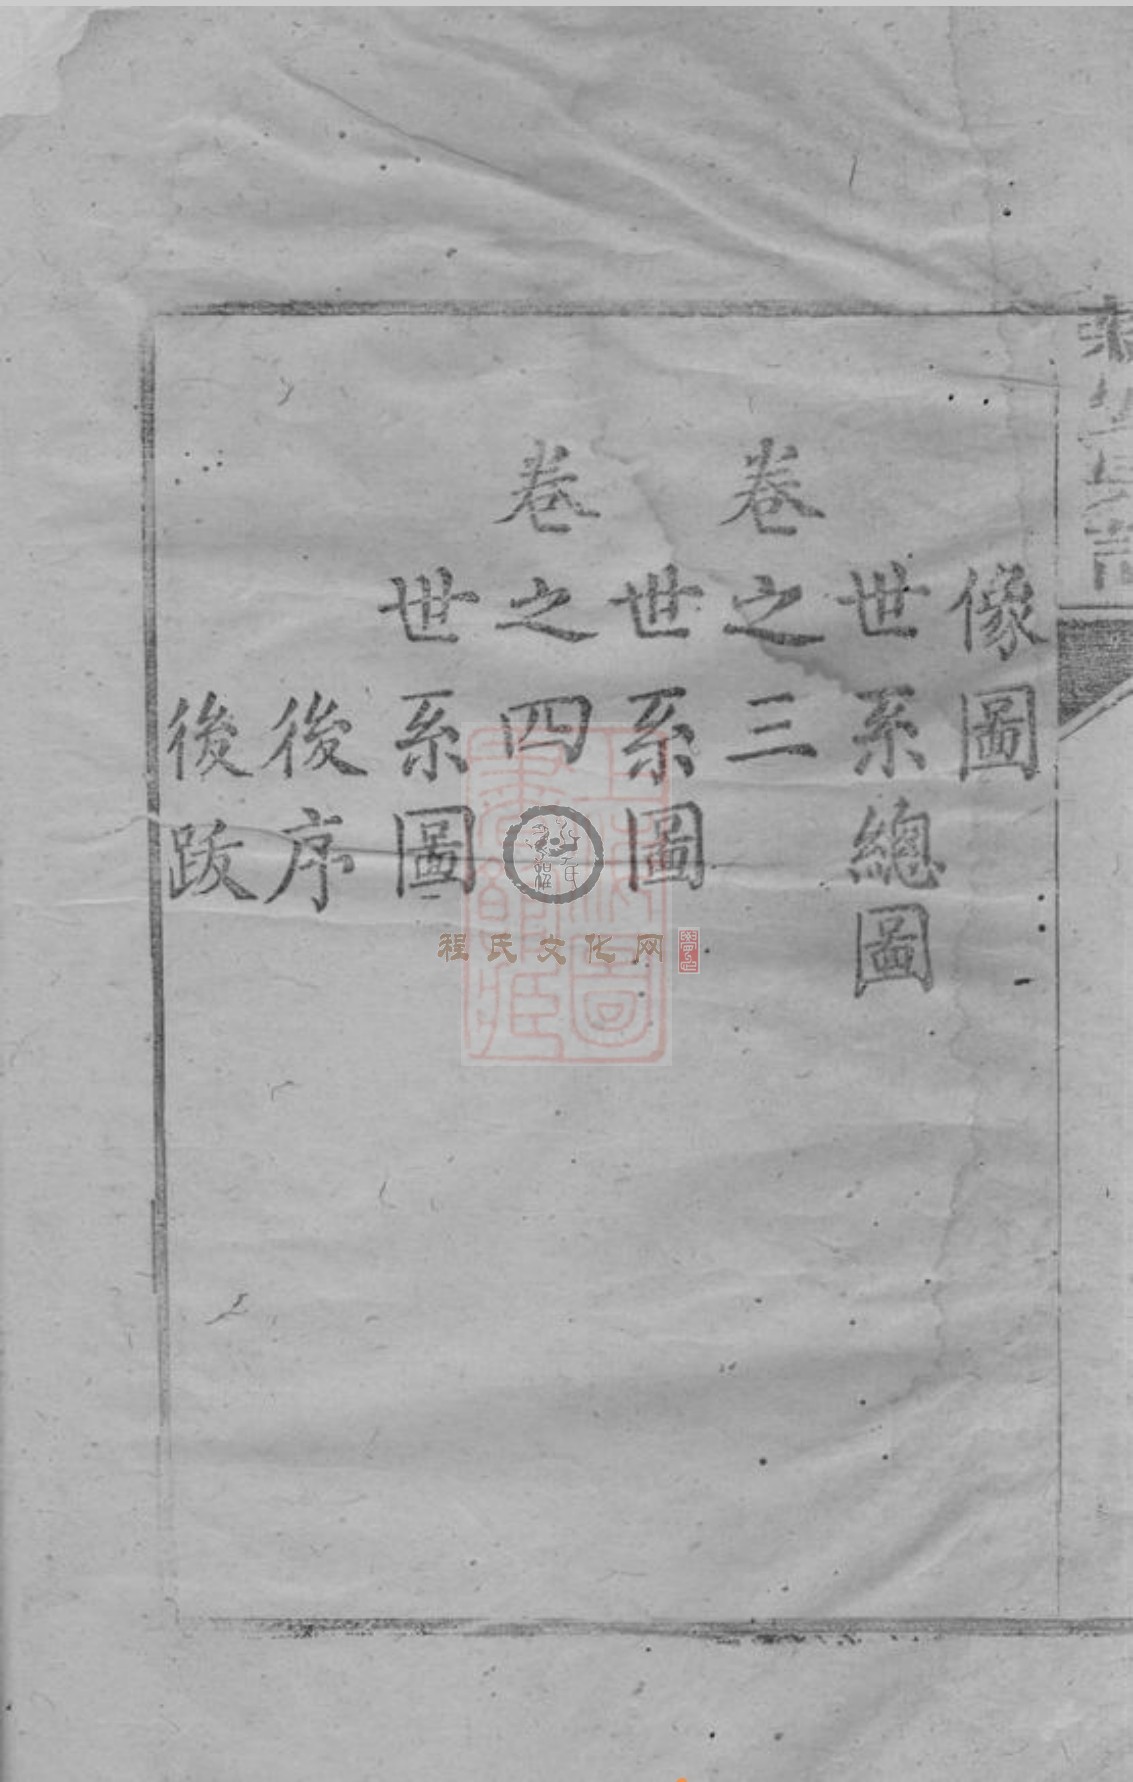 像圖
世系總圖
卷之三
世系圖
卷之四
世系圖
後序
後跋
程氏文化网